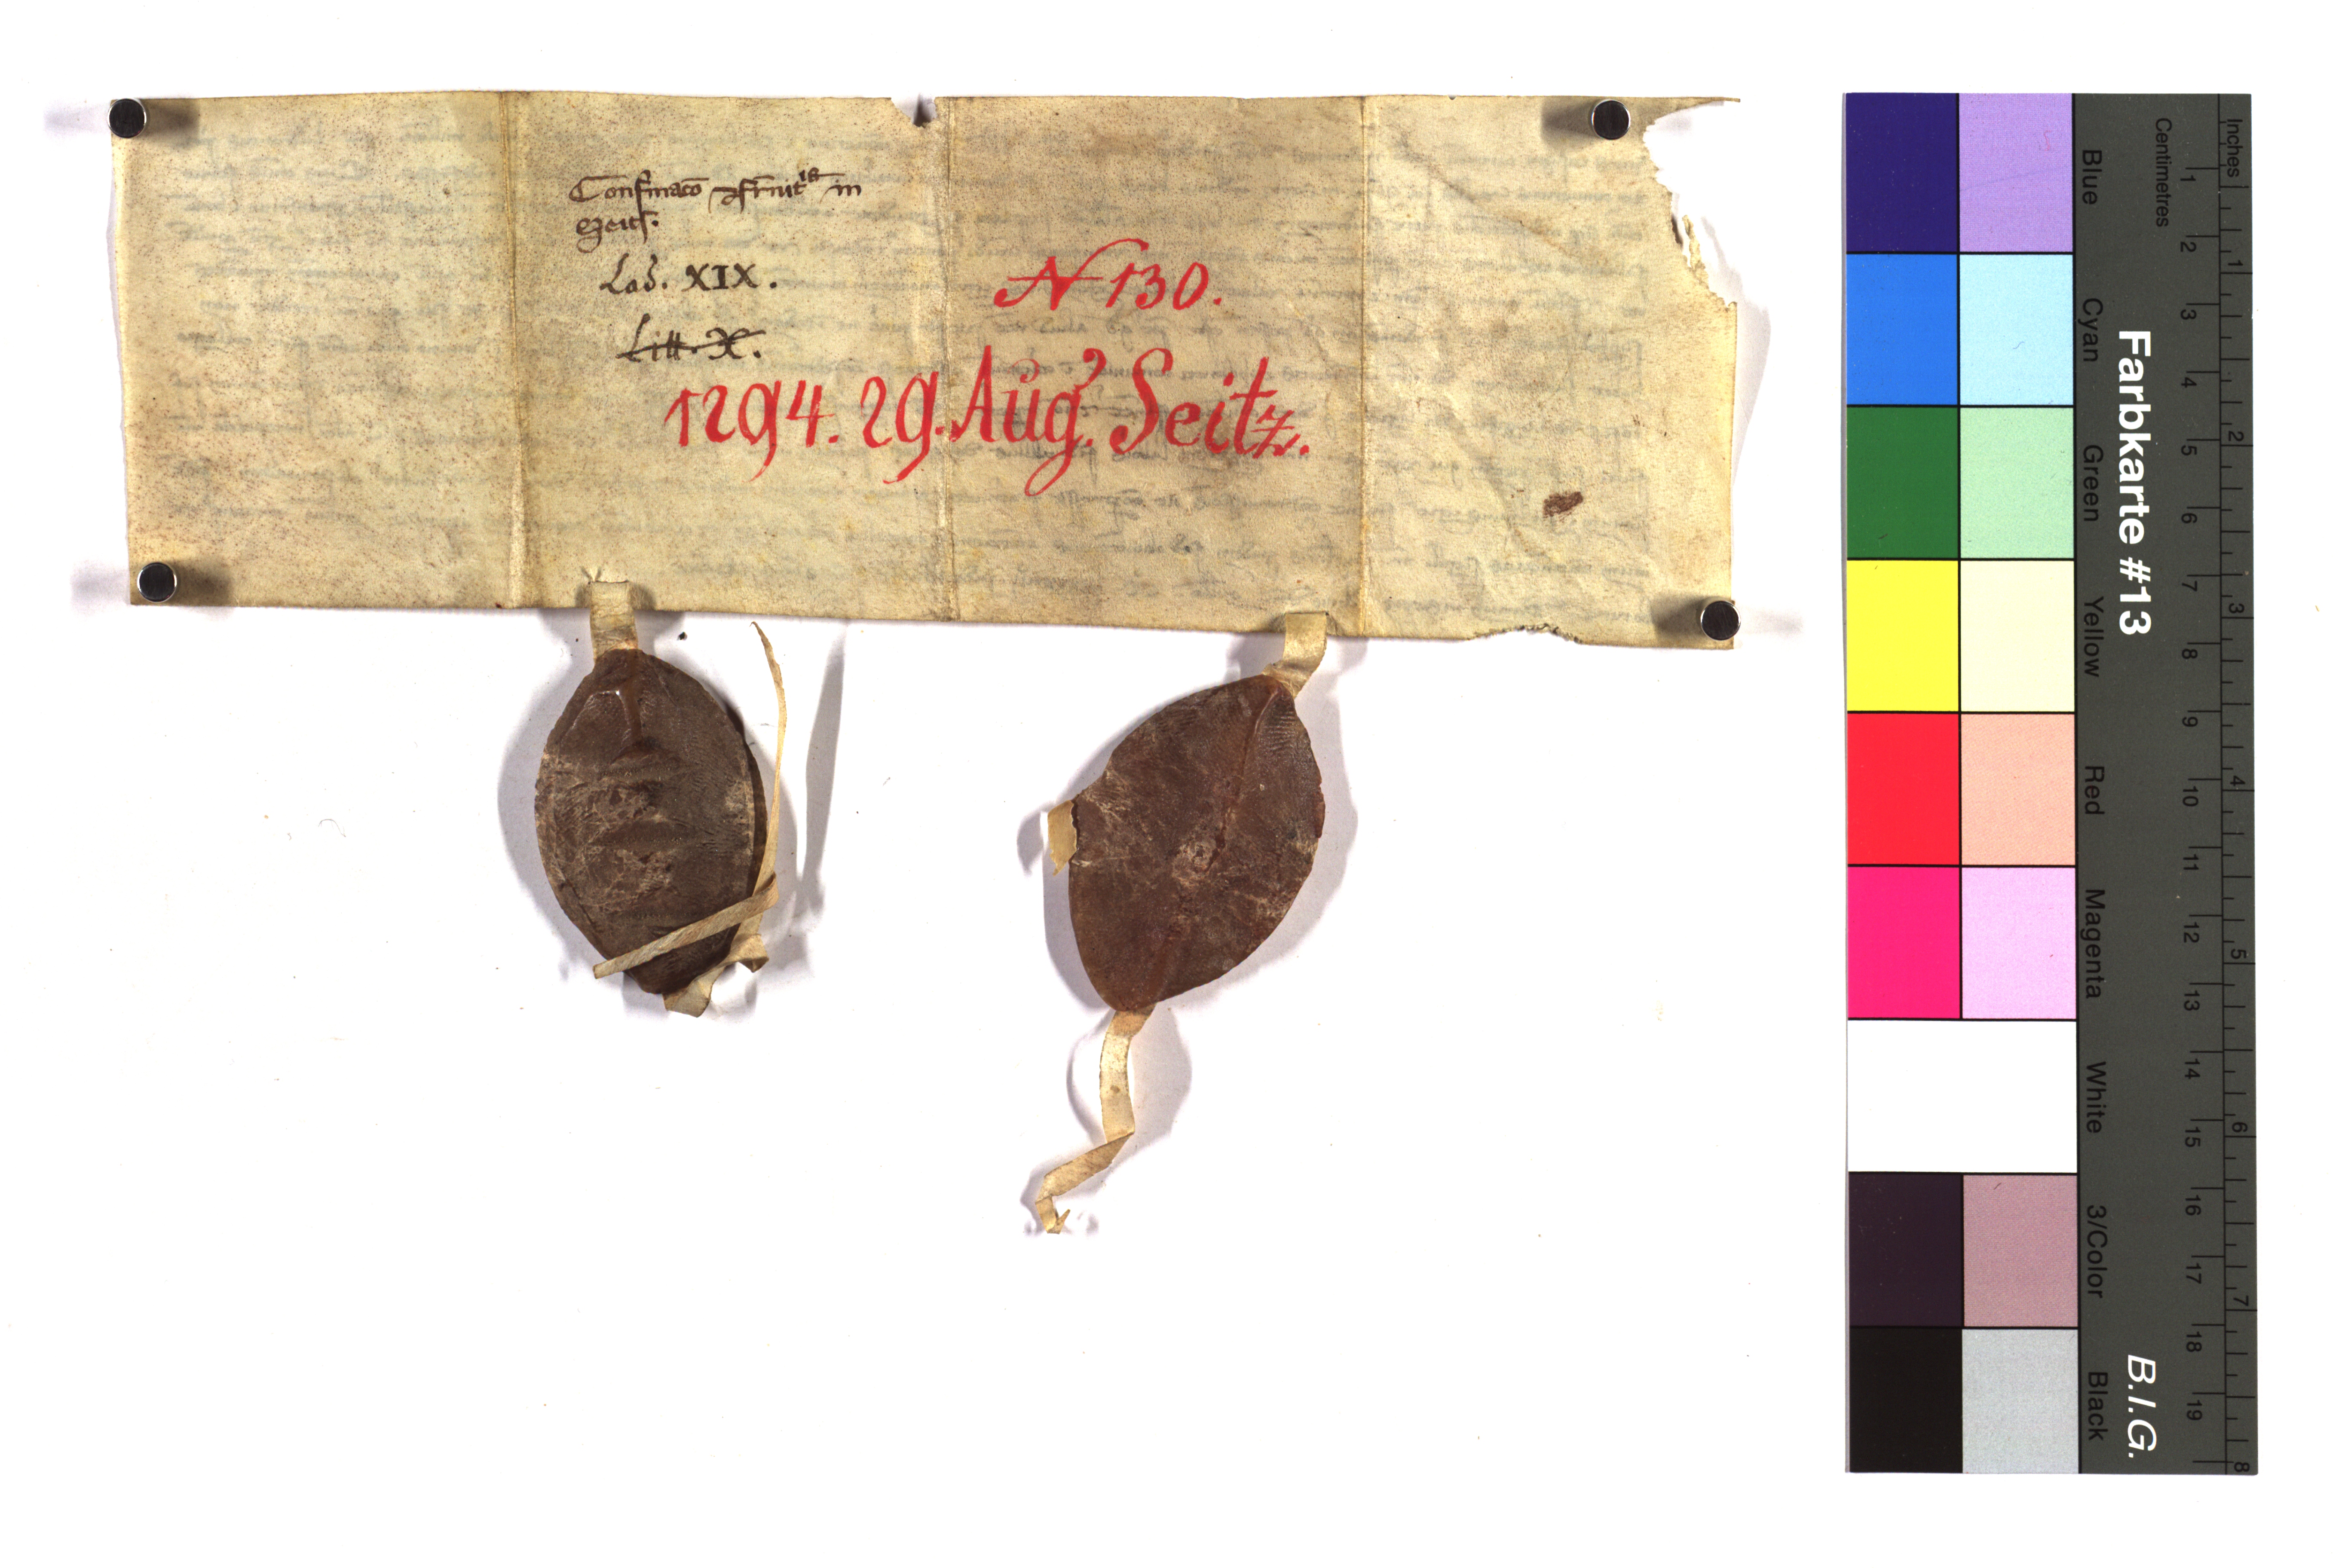 Confirmaco
in
Lad. XIX.
Litt. X.
N 130.
1294. 29. Aug? Seitz.
Inches
Centimetres
1 2 3 4 5 6 7 8 9 10 11 12 13 14 15 16 17 18 19
1 2 3 4 5 6 7 8
Farbkarte #13
B.I.G.
Blue
Cyan
Green
Yellow
Red
Magenta
White
3/Color
Black